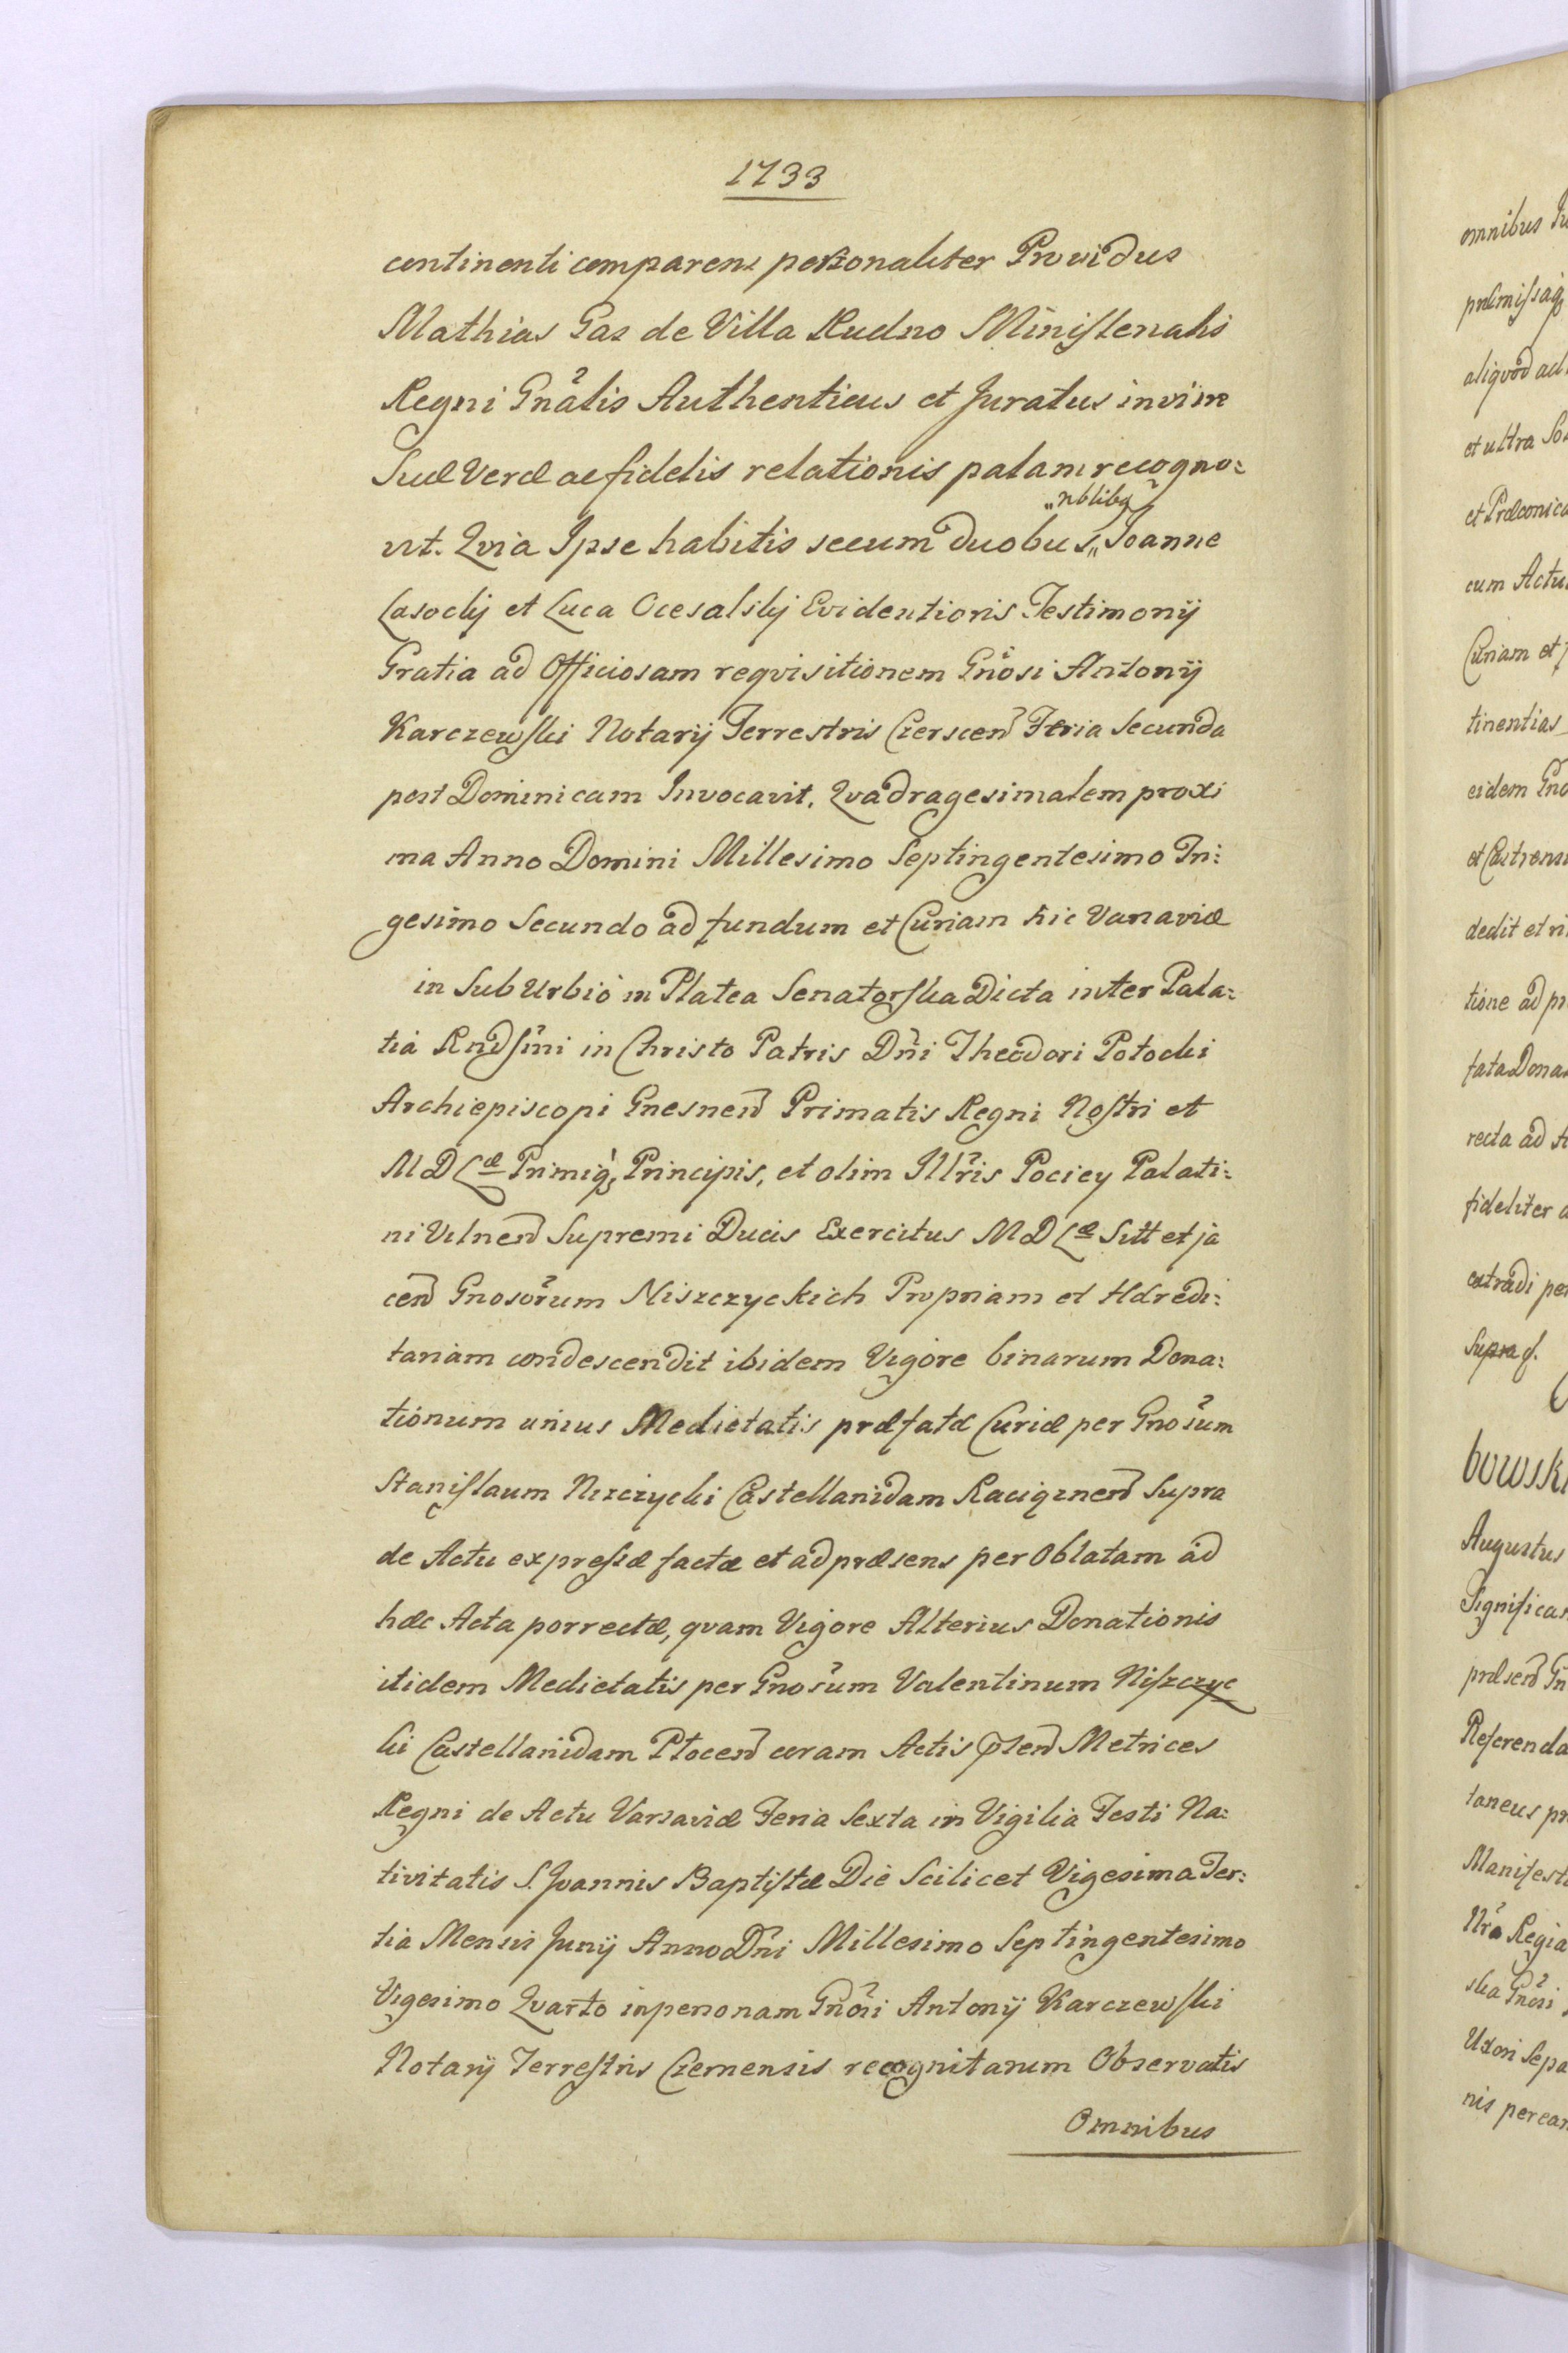 1733
continenti comparens personaliter Providus
Mathias Gaz de Villa Rudno Ministerialis
Regni Gnãlis Authenticus et Juratus in vim
Suæ Veræ ac fidelis relationis palam recogno:
„nblibq
vit. Qvia Ipse habitis secum duobus „ Joanne
Lasocky et Luca Ocesalsky Evidentioris Testimonÿ
Gratia ad Officiosam reqvisitionem Gnosi Antonÿ
Karczewski Notarÿ Terrestris Czerscen Feria Secunda
post Dominicam Invocavit, Qvadragesimalem proxi
ma Anno Domini Millesimo Septingentesimo Tri:
gesimo Secundo ad fundum et Curiam hic Varsaviæ
in Sub Urbio in Platea Senatorska Dicta inter Pala:
tia Rndsmi in Christo Patris Dñi Theodori Potocki
Archiepiscopi Gnesnen Primatis Regni Nostri et
M D Læ Primiq, Principis, et olim Illris Pociey Palati:
ni Vilnen Supremi Ducis Exercitus M D Læ Sitt et ja
cen Gnosorum Niszczyckich Propriam et Hæredi:
tariam condescendit ibidem Vigore binarum Dona:
tionum unius Medietatis præfatæ Curiæ per Gnosum
Stanislaum Niszczycki Castellanidam Raciąznen Supra
de Actu expressæ factæ et ad præsens per Oblatam ad
hæc Acta porrectæ, qvam Vigore Alterius Donationis
itidem Medietatis per Gnosum Valentinum Niszczyc
ki Castellanidam Plocen coram Actis Metrices
Regni de Actu Varsaviæ Feria Sexta in Vigilia Festi Na:
tivitatis S. Joannis Baptistæ Die Scilicet Vigesima Ter:
tia Mensis Junÿ Anno Dñi Millesimo Septingentesimo
Vigesimo Qvarto in personam Gnosi Antonÿ Karczewski
Notarÿ Terrestris Czernensis recognitarum Observatis
Omnibus
omnibus
præmissaq
aliqvod
et ultra
et Præconica
cum Actu
Curiam et
tinentias
eidem Gno
et Castrensi
dedit et
tione ad
fata Dona
recta ad
fideliter
extradi per
Supra
bowsk
Augustus
Significa
præsen Gn
Referenda
taneus
Manifest
Nra Regia
ska Gnosi
Uxori Sepa
nis per ean